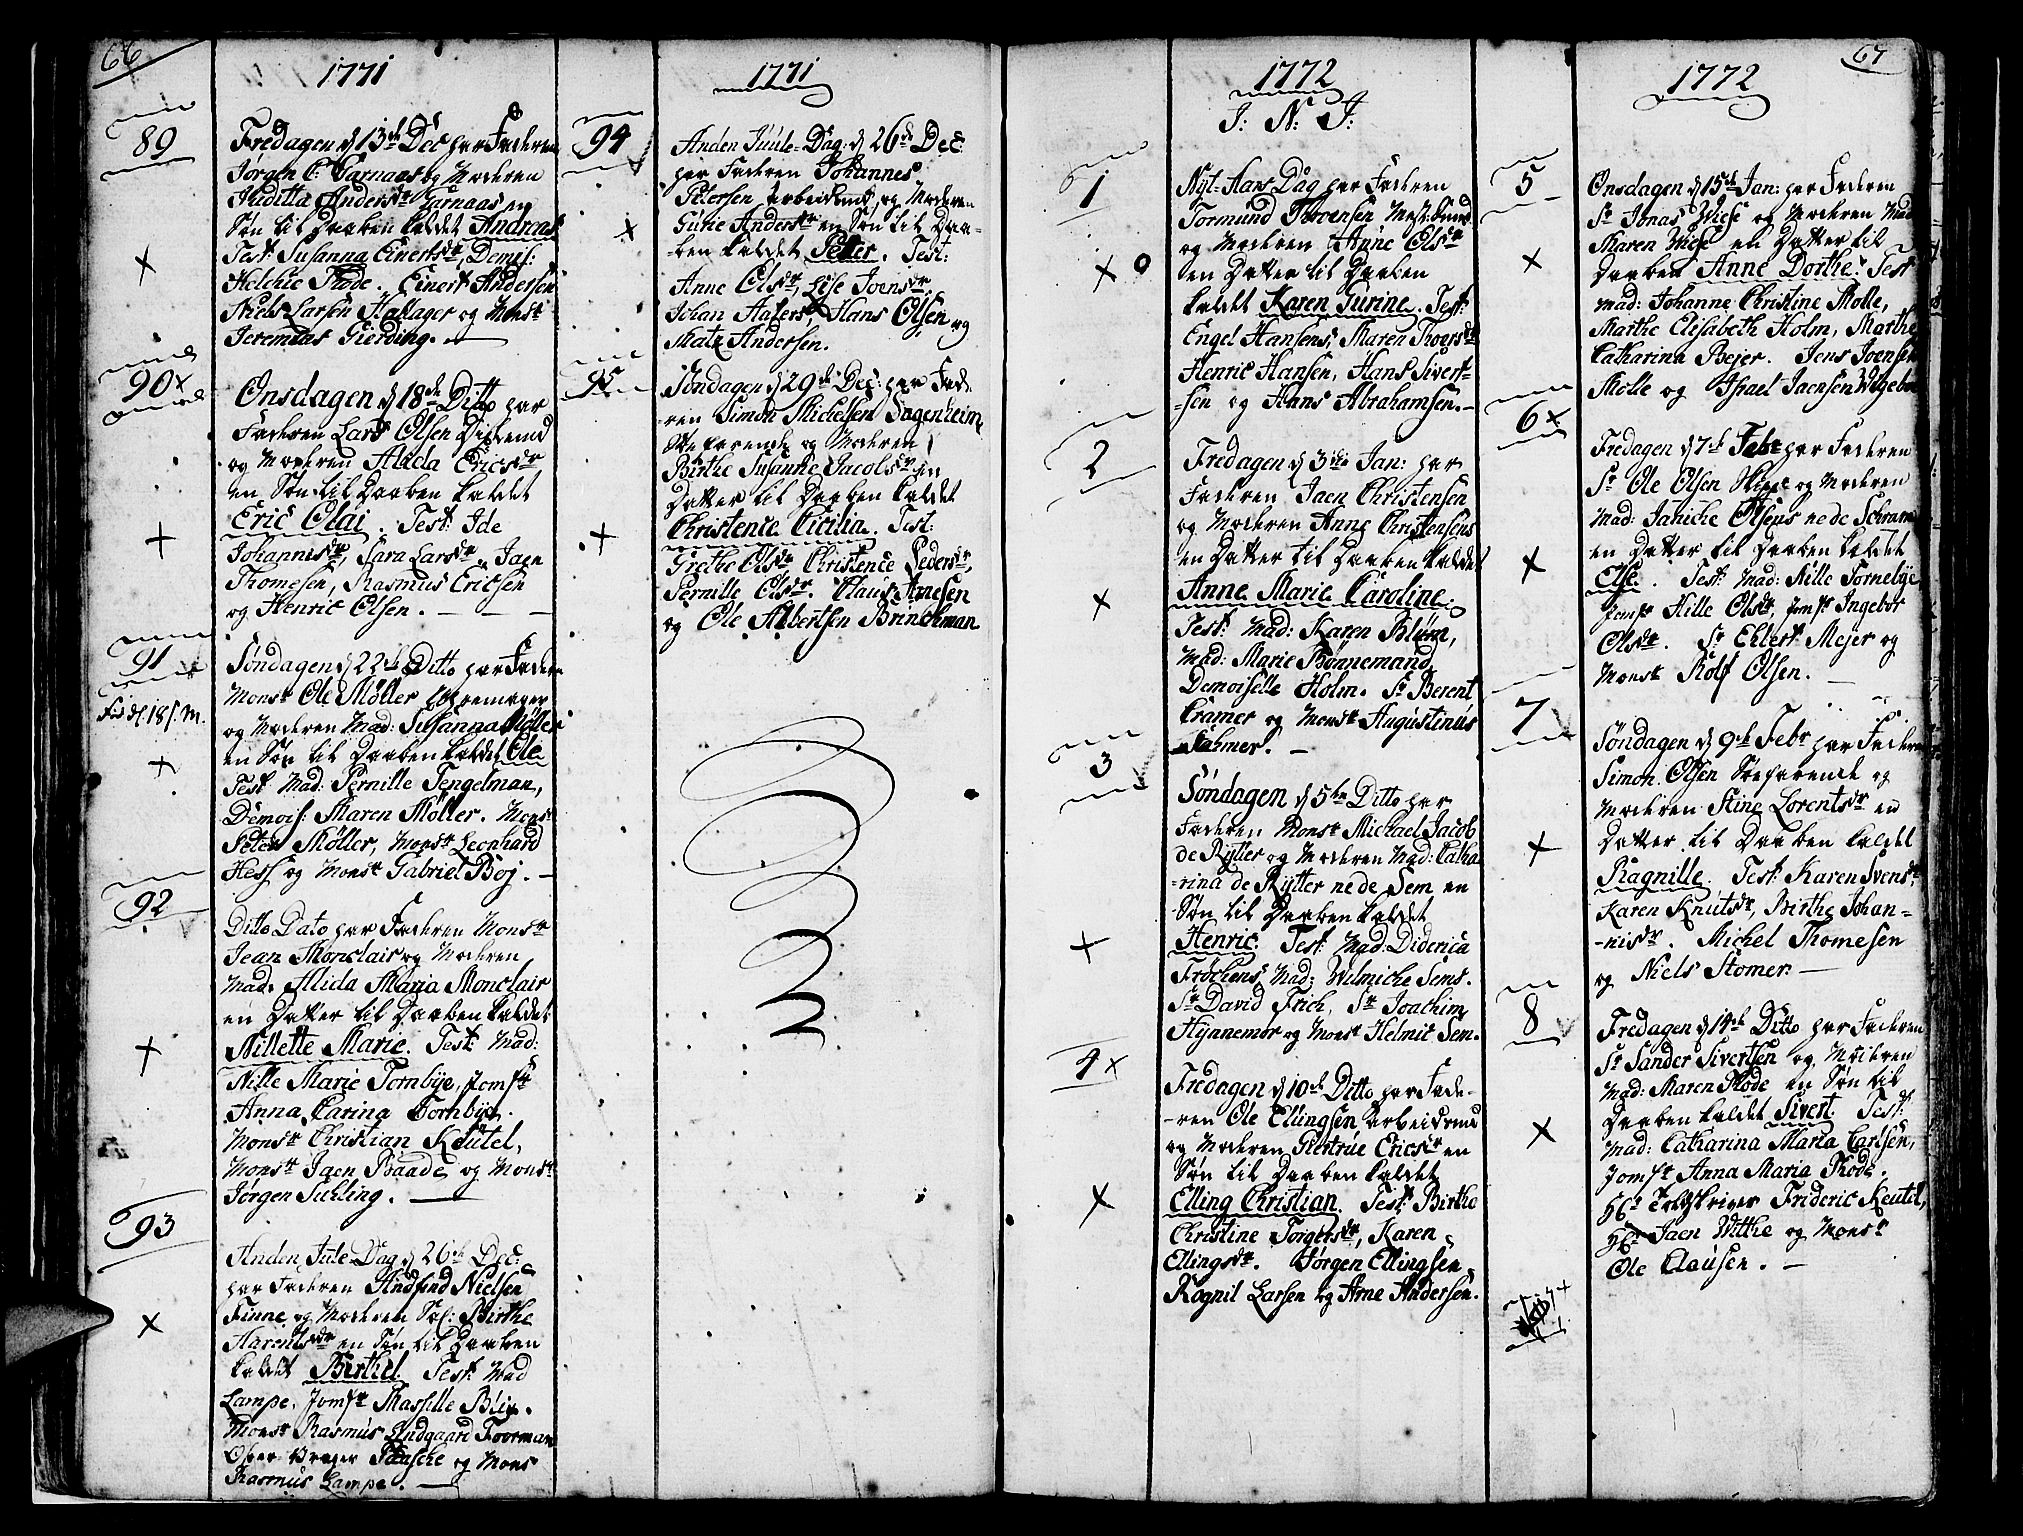 66
1771
89
Fredagen d 13de Dec har Faderen
Jørgen C: Garnaas og Moderen
Juditta Andersdr Garnaas en
Søn til Daaben kaldet Andreas
Test: Susanna Einertsdr, Demls:
Helchie Rode. Einert Andersen
Niels Larsen Hallager og Monsr
Jeremias Gierding.
90 x
Onsdagen d 18de Ditto har
Faderen Lars Olsen
og Moderen Alida Ericsdr
en Søn til Daaben kaldet
Eric Olai. Test: Ide
Johannisdr, Sara Larsdr, Jaen
Thomesen, Rasmus Ericsen
og Henric Olsen.
91
Fød d. 18 s. M.
Søndagen d 22de Ditto har Faderen
Monsr Ole Møller
og Moderen Mad: Susanna Møller
en Søn til Daaben kaldet Ole
Test: Mad: Pernille Tengelman,
Demois: Maren Møller. Monsr
Peter Møller, Monsr Leonhard
Hess og Monsr Gabriel Boj.
92
Ditto Dato har Faderen Monsr
Jean Monclair og Moderen
Mad: Alida Maria Monclair
en Datter til Daaben kaldet
Nillette Marie. Test: Mad:
Nille Marie Tornbÿe, Jomfr
Anna Carina Tornbÿe.
Monsr Christian Keütel,
Monsr Jaen Baade og Monsr
Jørgen Suhling.
93
Anden Jule-Dag d 26de Dec:
har Faderen Andfind Nielsen
Finne og Moderen Sal: Birthe
Harentsdr en Søn til Daaben
kaldet Birthel. Test: Mad
Lampe, Jomfr Massille Blix.
Monsr Rasmus Lindgaard Foorman
Over Vrager Fasche og Mons
Rasmus Lampe.
1771
94
Anden Juule-Dag: d 26de Dec:
har Faderen Johannes
Petersen Arbeidsmd, og Moderen
Gurie Andersdr en Søn til Daa-
-ben kaldet Peter. Test:
Anne Olsdr, Lise Joensdr.
Johan Aalers, Hans Olsen og
Matz Andersen.
95
Søndagen d 29de Dec: har Fade-
-ren Simon Michelsen Ingenheim,
Søefarende og Moderen
Birthe Susanne Jacobsdr en
Datter til Daaben kaldet
Christence Cicilia. Test:
Grethe Olsdr Christence Pedersdr,
Pernille Olsdr. Claus Arnesen
og Ole Albertsen Brinchman
1772
J: N: J:
1
Nyt-Aars Dag har Faderen
Tormund Thoersen
og Moderen Anne Olsdr
en Datter til Daaben
kaldet Karen Gurine. Test:
Engel Hansens, Maren Thoersdr
Henric Hansen, Hans Sivert-
-sen og Hans Abrahamsen.
2
Fredagen d 3die Jan: har
Faderen Jaen Christensen
og Moderen Anne Christensens
en Datter til Daaben kaldet
Anne Marie Caroline.
Test: Mad: Karen Blüm,
Mad: Marie Bønnemand,
Demoiselle Holm. Sr Berent
Cramer og Monsr Augustinus
Fahmer.
3
Søndagen d 5te Ditto har
Faderen Monsr Michael Jacob
de Rÿtter og Moderen Mad: Catha
-rina de Rÿtter nede Sem en
Søn til Daaben kaldet
Henric. Test: Mad: Diderica
Frochens, Mad: Wilmiche Sems.
Sr David Frich, Sr Joachim
Hÿnnemør og Monsr Helmic Sem.
4 x
Fredagen d 10de Ditto har Fade-
-ren Ole Ellingsen Arbeidsmd
og Moderen Giertrue Ericsdr en
Søn til Daaben kaldet
Elling Christian. Test: Birthe
Christine Torgersdr, Karen
Ellingsdr. Jørgen Ellingsen,
Rognil Larsen og Arne Andersen.
67
1772
5
Onsdagen d 15de Jan: har Faderen
Sr Jonas Wiese og Moderen Mad
Maren Wiese en Datter til
Daaben Anne Dorthe. Test
Mad: Johanne Christine Molle,
Marthe Elisabeth Holm, Marthe
Catharina Bejer. Jens Joensen
Molle og Israel Jaensen
6 x
Fredagen d 7de Febr har Faderen
Sr Ole Olsen og Moderen
Mad: Janiche Olsens nede Schram
en Datter til Daaben kaldet
Else. Test: Mad: Nille Tornebÿe,
Jomfr Hille Olsdr, Jomfr Ingebor
Olsdr. Sr Ehlert Mejer og
Monsr Rolf Olsen.
7
Søndagen d 9de Febr har Faderen
Simon Olsen Søefarende og
Moderen Stine Lorentsdr en
Datter til Daaben kaldet
Ragnille. Test: Karen Svensdr,
Karen Knutsdr, Birthe Johan-
-nisdr. Michel Thomesen
og Niels Stomer.
8
Fredagen d 14de Ditto har Faderen
Sr Sander Sivertsen og Moderen
Mad: Maren Rode en Søn til
Daaben kaldet Sivert. Test:
Mad: Catharina Maria Carlsen,
Jomfr Anna Maria Rode.
Hr Frideric Keutel,
Hr Jaen Witthe og Monsr
Ole Clausen.